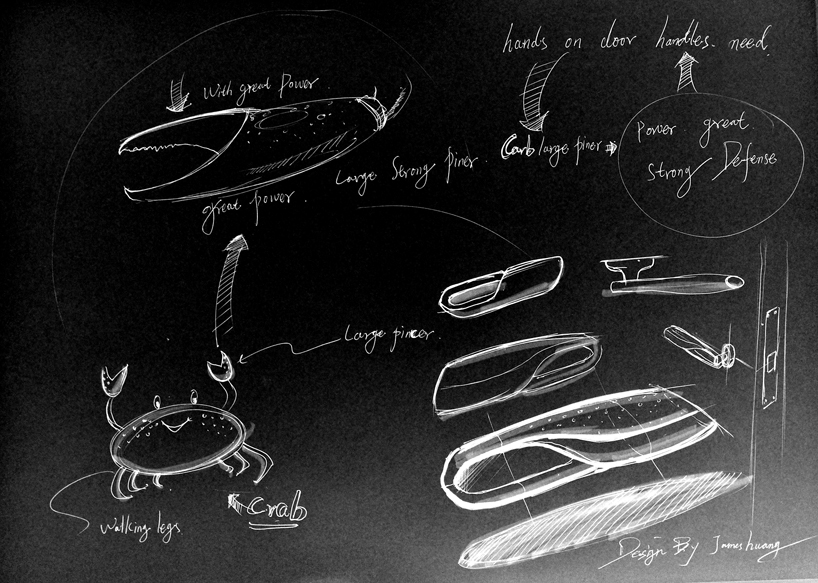 hands on door handles. need.
With great Power.
Carb large piner
Power great
Strong Defense
Large Strong piner.
great power.
Large pincer.
Crab
Walking legs
Design By James huang